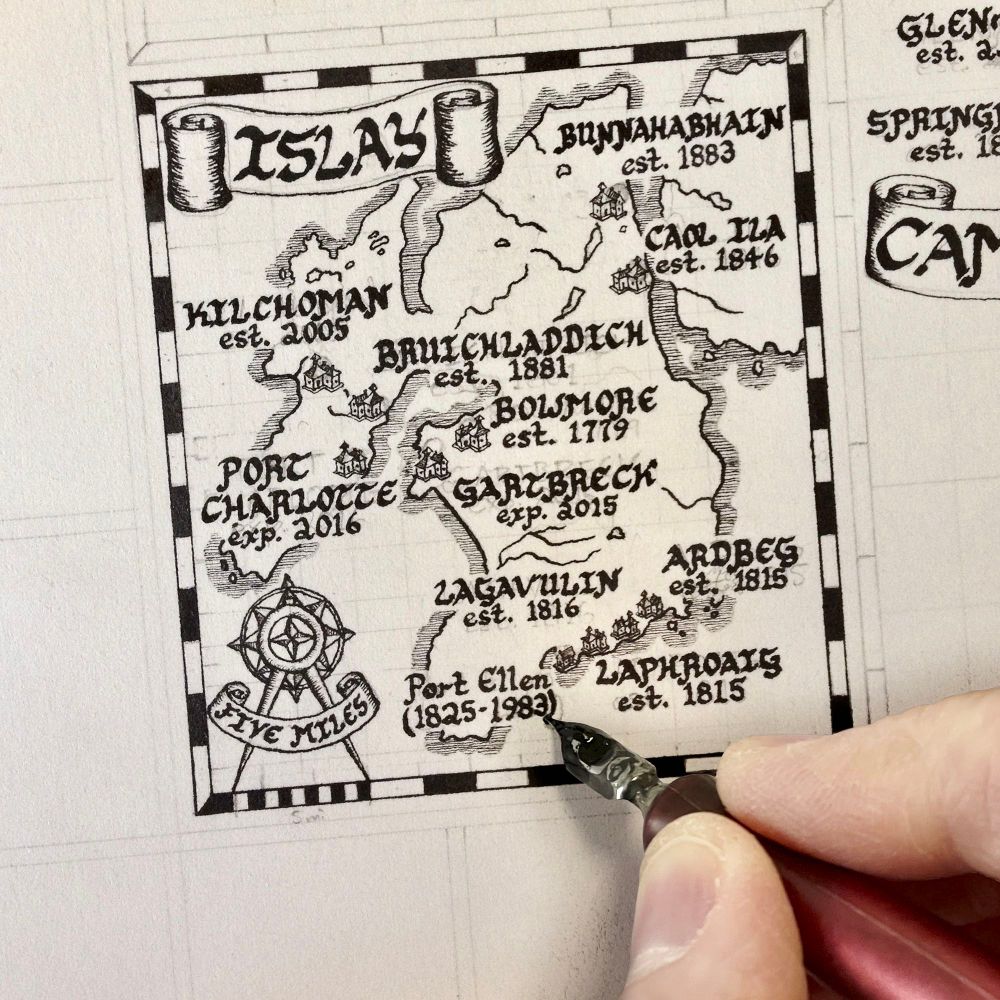 ISLAY
BUNNAHABHAIN
est. 1883
CAOL ILA
est. 1846
KILCHOMAN
est. 2005
BRUICHLADDICH
est. 1881
BOWMORE
est. 1779
PORT
CHARLOTTE
exp. 2016
GARTBRECK
exp. 2015
ARDBEG
est. 1815
LAGAVULIN
est. 1816
LAPHROAIG
est. 1815
Port Ellen
(1825-1983)
FIVE MILES
5 mi
GLEN
est. 2
SPRING
est. 18
CAM